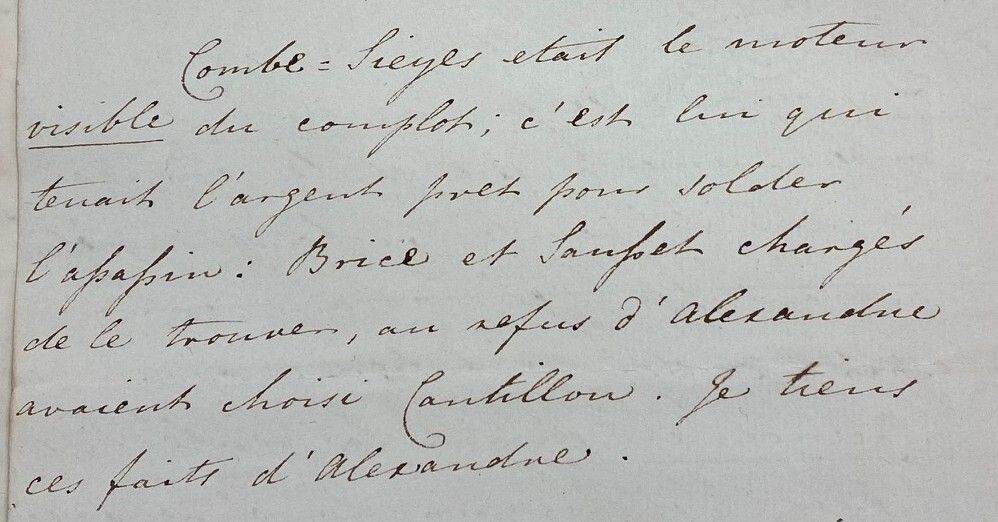 Combe=Sieyes etait le moteur
visible du complot; c'est lui qui
tenait l'argent pret pour solder
l'assassin: Brice et Sausset chargés
de le trouver, au refus d'Alexandre
avaient choisi Cantillon. Je tiens
ces faits d'Alexandre.